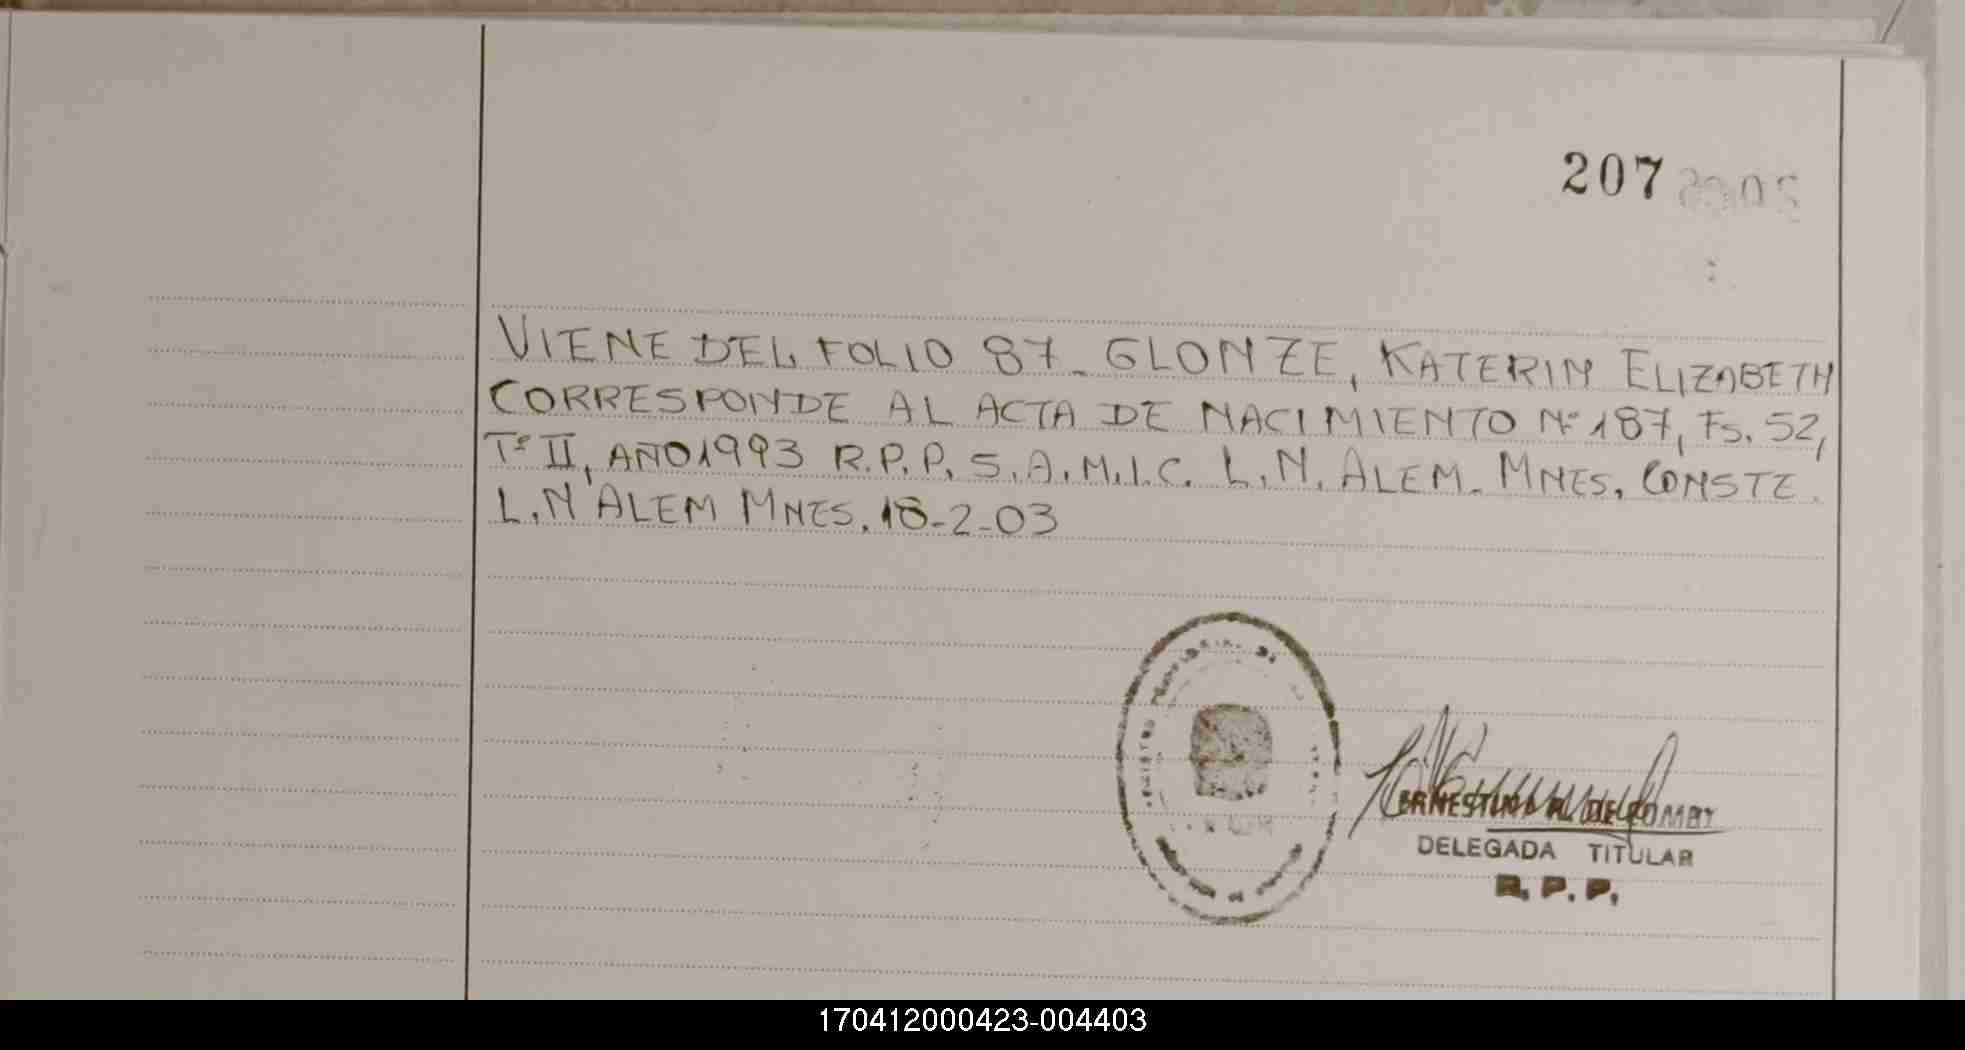 207
VIENE DEL FOLIO 87. GLONZE, KATERIN ELIZABETH
CORRESPONDE AL ACTA DE NACIMIENTO Nº 187, Fs. 52,
Tº II, AÑO 1993 R.P.P. S.A.M.I.C. L.N. ALEM. MNES. CONSTE.
L.N ALEM MNES. 18-2-03
DELEGADA TITULAR
R. P. P.
170412000423-004403